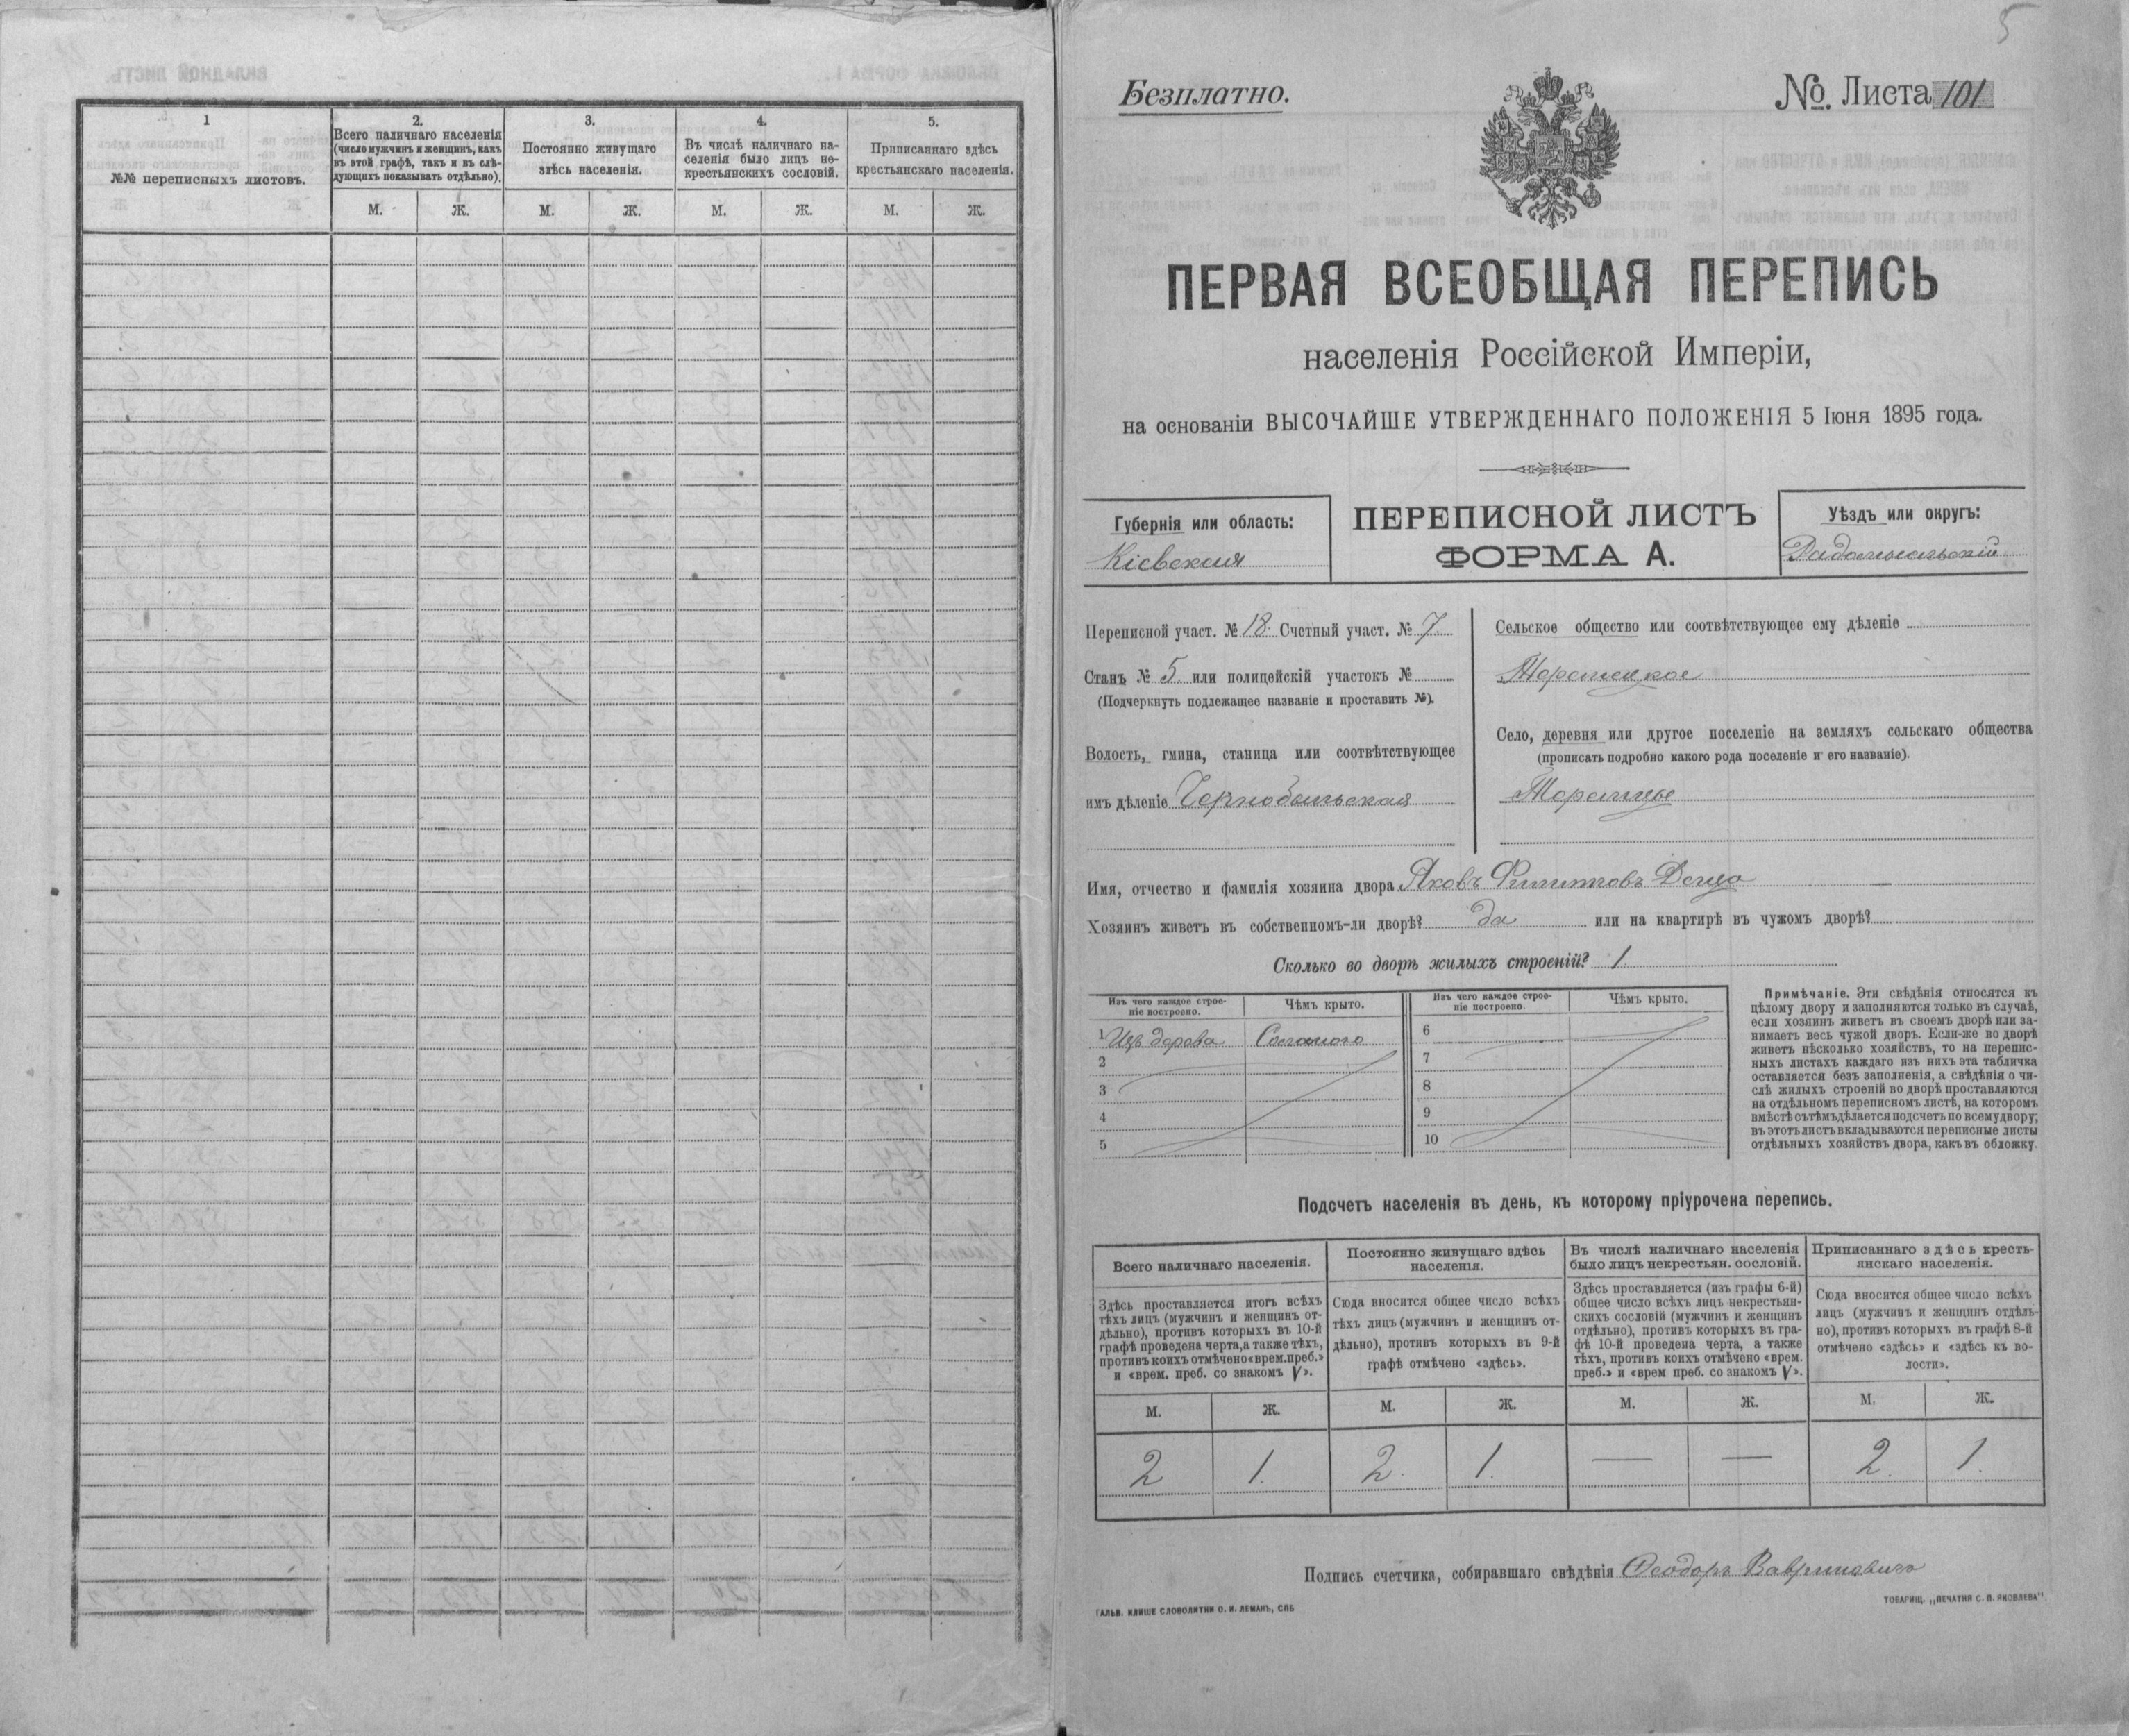 1
2.
3.
4.
5.
№№ переписныхъ листовъ.
Всего наличнаго населенія
(число мужчинъ и женщинъ, какъ
въ этой графѣ, такъ и въ слѣ-
дующихъ показывать отдѣльно).
Постоянно живущаго
здѣсь населенія.
Въ числѣ наличнаго на-
селенія было лицъ не-
крестьянскихъ сословій.
Приписаннаго здѣсь
крестьянскаго населенія.
М. Ж. М. Ж. М. Ж. М. Ж.
5
Безплатно.
№. Листа 101
ПЕРВАЯ ВСЕОБЩАЯ ПЕРЕПИСЬ
населенія Россійской Имперіи,
на основаніи ВЫСОЧАЙШЕ УТВЕРЖДЕННАГО ПОЛОЖЕНІЯ 5 Іюня 1895 года.
Губернія или область:
Кіевская
ПЕРЕПИСНОЙ ЛИСТЪ
ФОРМА А.
Уѣздъ или округъ:
Радомысльскій
Переписной участ. № 18. Счетный участ. № 7.
Станъ № 5. или полицейскій участокъ №
(Подчеркнуть подлежащее названіе и проставить №).
Волость, гмина, станица или соотвѣтствующее
имъ дѣленіе Чернобыльская
Сельское общество или соотвѣтствующее ему дѣленіе
Село, деревня или другое поселеніе на земляхъ сельскаго общества
(прописать подробно какого рода поселеніе и его названіе).
Имя, отчество и фамилія хозяина двора Яковъ Филиповъ
Хозяинъ живетъ въ собственномъ-ли дворѣ? да или на квартирѣ въ чужомъ дворѣ?
Сколько во дворѣ жилыхъ строеній? 1.
Изъ чего каждое строе-
ніе построено.
Чѣмъ крыто.
Изъ чего каждое строе-
ніе построено
Чѣмъ крыто.
1 Изъ дерева Соломою
2
3
4
5
6
7
8
9
10
Примѣчаніе. Эти свѣдѣнія относятся къ
цѣлому двору и заполняются только въ случаѣ,
если хозяинъ живетъ въ своемъ дворѣ или за-
нимаетъ весь чужой дворъ. Если-же во дворѣ
живетъ нѣсколько хозяйствъ, то на перепис-
ныхъ листахъ каждаго изъ нихъ эта табличка
оставляется безъ заполненія, а свѣдѣнія о чи-
слѣ жилыхъ строеній во дворѣ проставляются
на отдѣльномъ переписномъ листѣ, на которомъ
вмѣстѣ съ тѣмъ дѣлается подсчетъ по всему двору;
въ этотъ листъ вкладываются переписные листы
отдѣльныхъ хозяйствъ двора, какъ въ обложку.
Подсчетъ населенія въ день, къ которому пріурочена перепись.
Всего наличнаго населенія.
Постоянно живущаго здѣсь
населенія.
Въ числѣ наличнаго населенія
было лицъ некрестьян. сословій.
Приписаннаго здѣсь кресть-
янскаго населенія.
Здѣсь проставляется итогъ всѣхъ
тѣхъ лицъ (мужчинъ и женщинъ от-
дѣльно), противъ которыхъ въ 10-й
графѣ проведена черта, а также тѣхъ,
противъ коихъ отмѣчено «врем. преб.»
и «врем. преб. со знакомъ V».
Сюда вносится общее число всѣхъ
тѣхъ лицъ (мужчинъ и женщинъ от-
дѣльно), противъ которыхъ въ 9-й
графѣ отмѣчено «здѣсь».
Здѣсь проставляется (изъ графы 6-й)
общее число всѣхъ лицъ некрестьян-
скихъ сословій (мужчинъ и женщинъ
отдѣльно), противъ которыхъ въ гра-
фѣ 10-й проведена черта, а также
тѣхъ, противъ коихъ отмѣчено «врем.
преб.» и «врем преб. со знакомъ V».
Сюда вносится общее число всѣхъ
лицъ (мужчинъ и женщинъ отдѣль-
но), противъ которыхъ въ графѣ 8-й
отмѣчено «здѣсь» и «здѣсь къ во-
лости».
М. Ж. М. Ж. М. Ж. М. Ж.
2 1. 2. 1. — — 2. 1.
Подпись счетчика, собиравшаго свѣдѣнія Ѳеодоръ Вавриновичъ
ГАЛЬВ. КЛИШЕ СЛОВОЛИТНИ О. И. ЛЕМАНЪ, СПБ
ТОВАРИЩ. „ПЕЧАТНЯ С. П. ЯКОВЛЕВА".